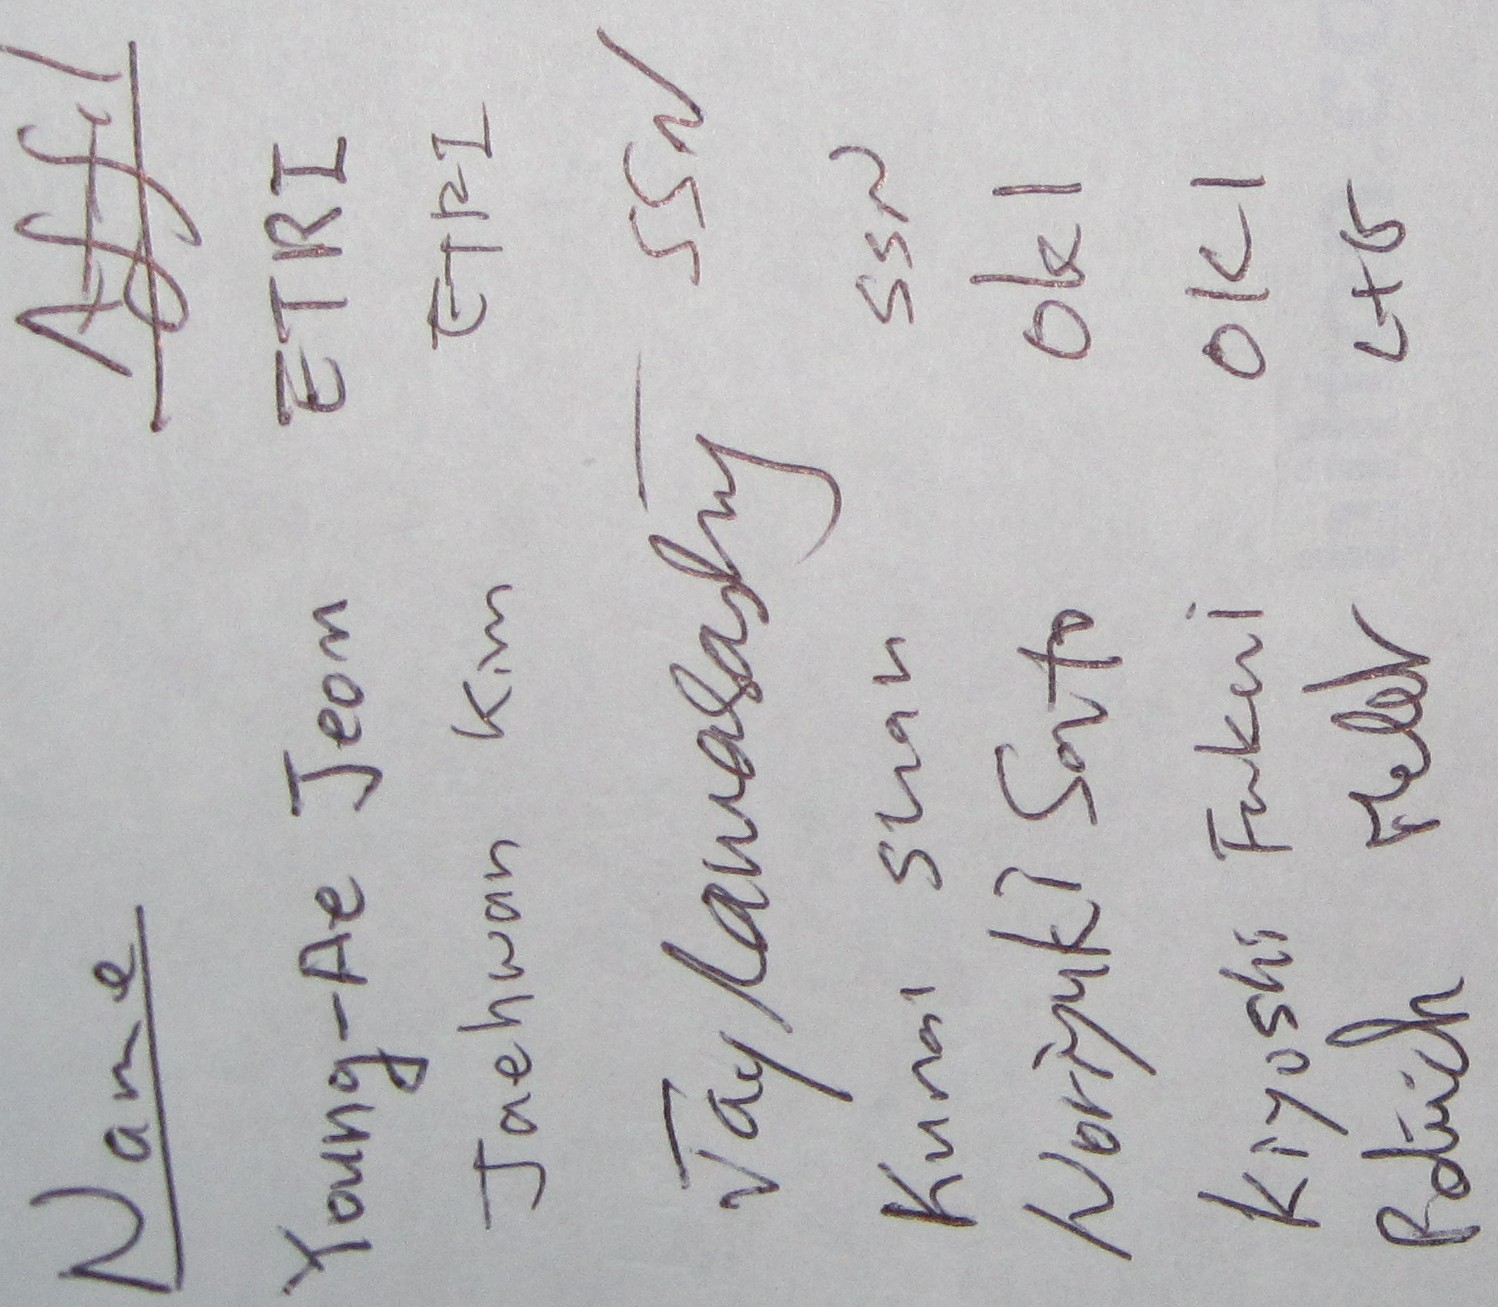 Name Affil
Young-Ae Jeon ETRI
Jaehwan Kim ETRI
Jay Ramasastry SSN
Kumai San SSN
Noriyuki Sato OKI
Kiyoshi Fukui OKI
L+G